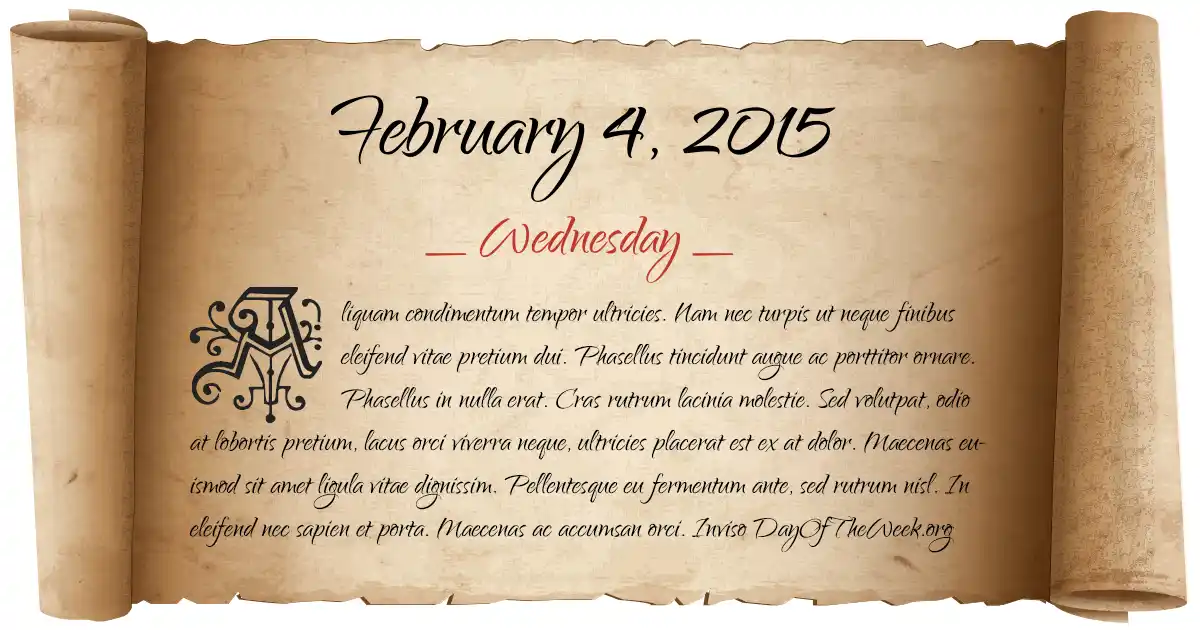 February 4, 2015
Wednesday
Aliquam condimentum tempor ultricies. Nam nec turpis ut neque finibus
eleifend vitae pretium dui. Phasellus tincidunt augue ac porttitor ornare.
Phasellus in nulla erat. Cras rutrum lacinia molestie. Sed volutpat, odio
at lobortis pretium, lacus orci viverra neque, ultricies placerat est ex at dolor. Maecenas eu-
ismod sit amet ligula vitae dignissim. Pellentesque eu fermentum ante, sed rutrum nisl. In
eleifend nec sapien et porta. Maecenas ac accumsan orci. Inviso DayOfTheWeek.org